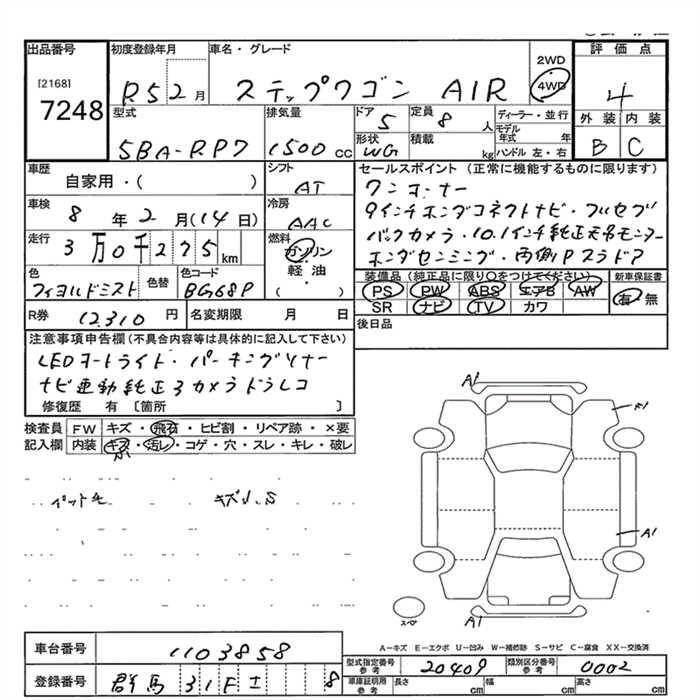 出品番号 初度登録年月 車名・グレード 評価点
[2168]
7248
R5 2月 ステップワゴン AIR 2WD 4WD 4
型式 排気量 ドア 定員 ディーラー・並行 外装 内装
5BA-RP7 1500cc 5 8人 モデル年式 年 B C
形状 WG 積載 kg ハンドル 左・右
車歴 シフト セールスポイント (正常に機能するものに限ります)
自家用・( ) AT ワンオーナー
車検 8年2月(14日) 冷房 AAC 9インチホンダコネクトナビ・フルセグ
走行 3万0千275km 燃料 ガソリン・軽油・( ) バックカメラ・10.1インチ純正天吊モニター
ホンダセンシング・両側Pスラドア
色 色替 色コード 装備品 (純正品に限り○をつけてください) 新車保証書
フィヨルドミスト BG68P PS PW ABS エアB AW 有・無
SR ナビ TV カワ
R券 12310円 名変期限 月 日 後日品
注意事項申告欄(不具合内容等は具体的に記入して下さい)
LEDオートライト・パーキングソナー
ナビ連動純正3カメラドラレコ
修復歴 有 〔箇所 〕
検査員 FW キズ・飛石・ヒビ割・リペア跡・×要
記入欄 内装 キズ・汚レ・コゲ・穴・スレ・キレ・破レ
ペット毛 キズ小、S
A1
F1
A1
A1
スペア
A-キズ E-エクボ U-凹み W-補修跡 S-サビ C-腐食 XX-交換済
車台番号 1103858
型式指定番号 参考 20409 類別区分番号 参考 0002
登録番号 群馬 31F 8
車庫証明用 参考 長さ cm 幅 cm 高さ cm